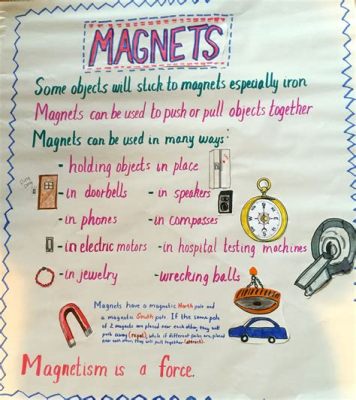 MAGNETS
Some objects will stick to magnets especially iron
Magnets can be used to push or pull objects together
Magnets can be used in many ways:
- holding objects in place
- in doorbells - in speakers
- in phones - in compasses
- in electric motors - in hospital testing machines
- in jewelry - wrecking balls
Magnets have a magnetic North pole and
a magnetic South pole. If the same pole
of 2 magnets are placed near each other, they will
push away (repel), while if different poles are placed
near each other, they will pull together (attract).
Magnetism is a force.